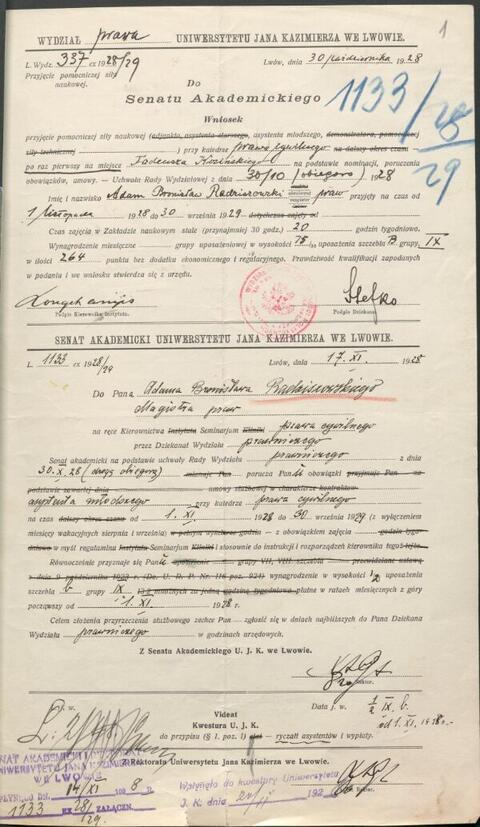 1
WYDZIAŁ prawa UNIWERSYTETU JANA KAZIMIERZA WE LWOWIE.
L. Wydz. 337 ex 1928/29 Lwów, dnia 30 października 1928
Przyjęcie pomocniczej siły
naukowej.
Do
Senatu Akademickiego
1133/28/29
Wniosek
przyjęcie pomocniczej siły naukowej (adjunkta, asystenta starszego, asystenta młodszego, demonstratora, pomocniczej
siły technicznej) przy katedrze prawa cywilnego na dalszy okres czasu
po raz pierwszy na miejsce Tadeusza na podstawie nominacji, poruczenia
obowiązków, umowy. — Uchwała Rady Wydziałowej z dnia 30/10 (obiegorą) 1928
Imię i nazwisko Adam Bronisław Radziszowski magister praw przyjęty na czas od
1 listopada 1928 do 30 września 1929 dotychczas zajęty od
Czas zajęcia w Zakładzie naukowym stale (przynajmniej 30 godz.) 20 godzin tygodniowo.
Wynagrodzenie miesięczne grupy uposażeniowej w wysokości 75% uposażenia szczebla B grupy IX
w ilości 264 punkta bez dodatku ekonomicznego i regulacyjnego. Prawdziwość kwalifikacji zapodanych
w podaniu i we wniosku stwierdza się z urzędu.
Longchamps Stefko
Podpis Kierownika Instytutu. Podpis Dziekana.
SENAT AKADEMICKI UNIWERSYTETU JANA KAZIMIERZA WE LWOWIE.
L. 1133 ex 1928/29 Lwów, dnia 17. XI. 1928
Do Pana Adama Bronisława Radziszowskiego
Magistra praw
na ręce Kierownictwa Instytutu Seminarjum Kliniki prawa cywilnego
przez Dziekanat Wydziału prawniczego
Senat akademicki na podstawie uchwały Rady Wydziału prawniczego z dnia
30. X. 28 (drogą obiegorą) mianuje Pan porucza Panu obowiązki przyjmuje Pan na
podstawie zawartej dnia umowy służbowej w charakterze kontraktow.
asystenta młodszego przy katedrze prawa cywilnego
na czas dalszy okres czasu od 1. XI. 1928 do 30 września 1929 (z wyłączeniem
miesięcy wakacyjnych sierpnia i września) w pełnym wymiarze godzin — z obowiązkiem zajęcia godzin tygo-
dniowo — w myśl regulaminu Instytutu Seminarjum Kliniki i stosownie do instrukcji i rozporządzeń kierownika tegoż
Równocześnie przyznaje się Panu uposażenie grupy VII, VIII szczebla przewidziane ustawą
z dnia 9 października 1923 r. (Dz. U. R. P. Nr. 116 poz. 924) wynagrodzenie w wysokości 1/2 uposażenia
szczebla b grupy IX płatne w ratach miesięcznych z góry
począwszy od 1. XI. 1928 r.
Celem złożenia przyrzeczenia służbowego zechce Pan — zgłosić się w dniach najbliższych do Pana Dziekana
Wydziału prawniczego w godzinach urzędowych.
Z Senatu Akademickiego U. J. K. we Lwowie.
Rektor.
w. Data j. w.
Videat
Kwestura U. J. K.
do przypisu (§ 1. poz. 1) — ryczałt asystentów i wypłaty.
1/2 IX. b.
od 1. XI. 1928
Z Rektoratu Uniwersytetu Jana Kazimierza we Lwowie.
SENAT AKADEMICKI
UNIWERSYTETU JANA KAZIMIERZA
WE LWOWIE
WPŁYNĘŁO DN. 14/XI 1928
1133 EX 28/29 ZAŁĄCZN.
Wpłynęło do kwestury Uniwersytetu
J. K. dnia 192
Rektor.